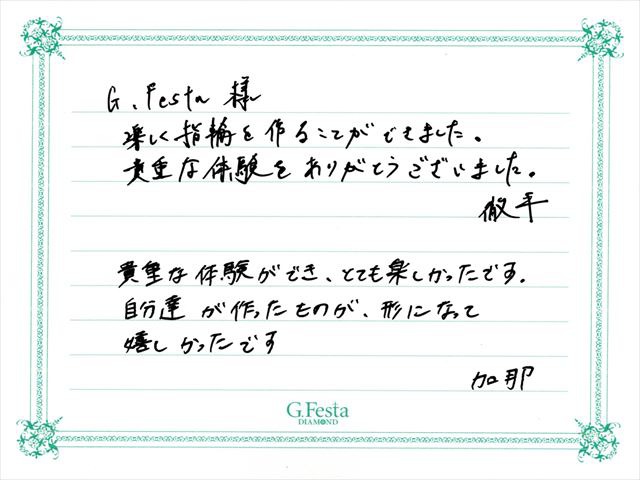 G.Festa 様
楽しく指輪を作ることができました。
貴重な体験をありがとうございました。
徹平
貴重な体験ができ、とても楽しかったです。
自分達が作ったものが、形になって
嬉しかったです
加那
G.Festa
DIAMOND